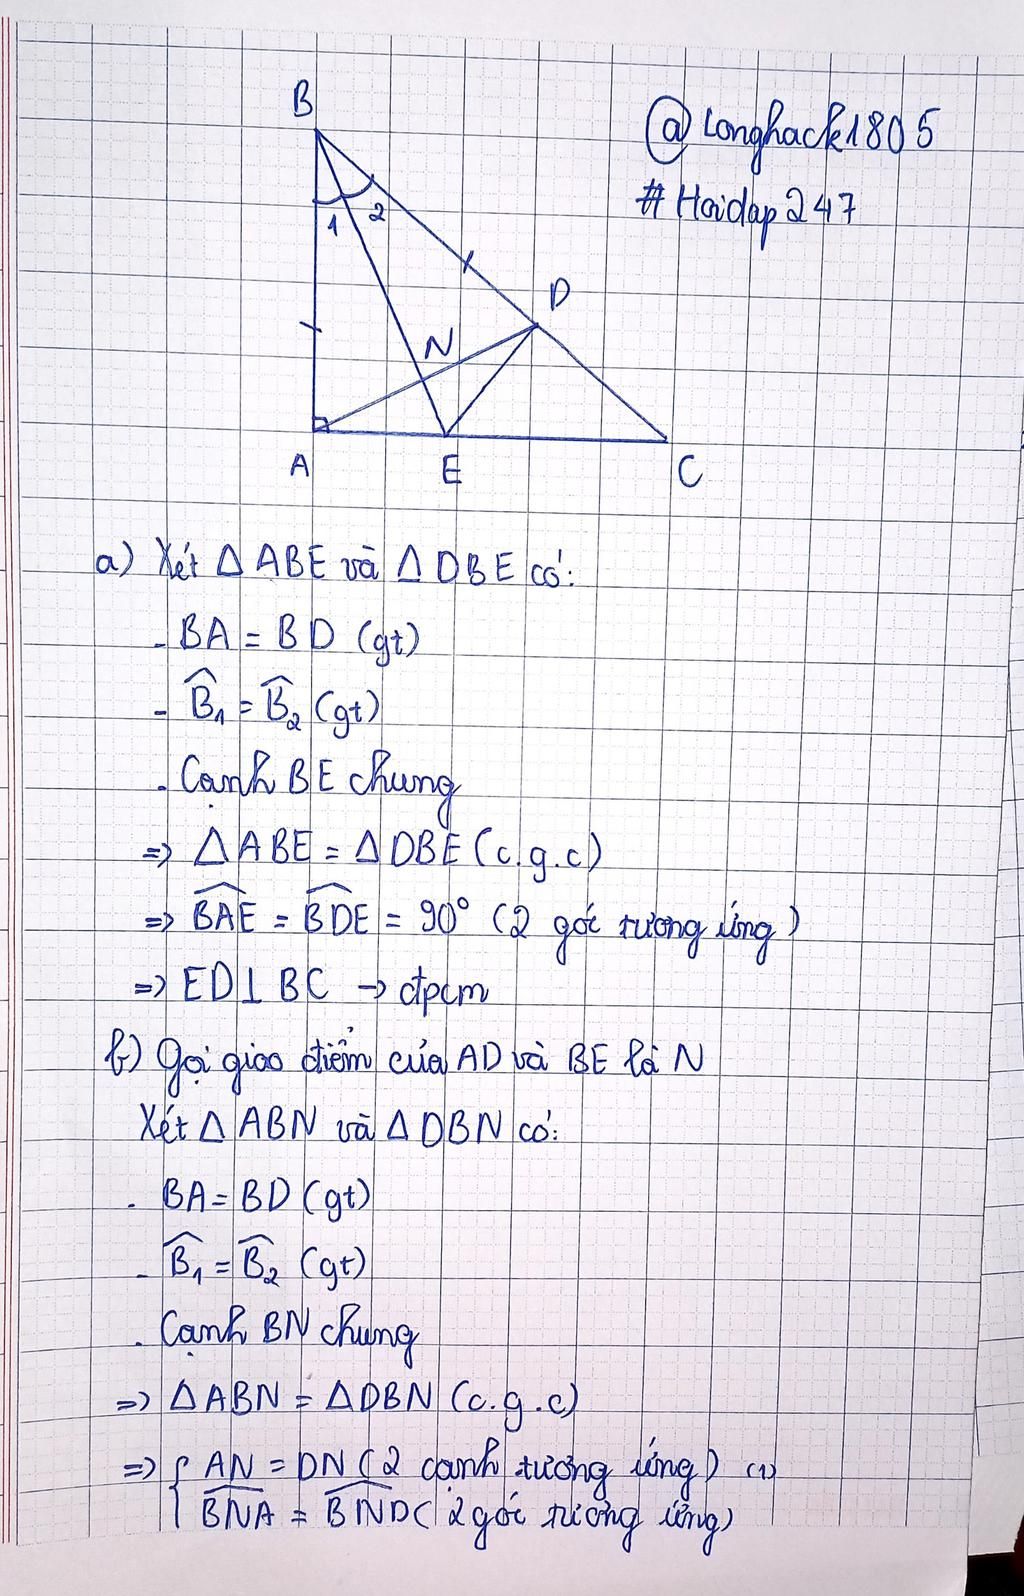 @Longhack1805
#Hoidap247
B
1
2
D
N
A
E
C
a) Xét Δ ABE và Δ DBE có:
- BA = BD (gt)
- B̂₁ = B̂₂ (gt)
- Cạnh BE chung
=> Δ ABE = Δ DBE (c.g.c)
=> \widehat{BAE} = \widehat{BDE} = 90° (2 góc tương ứng)
=> ED ⊥ BC → đpcm
b) Gọi giao điểm của AD và BE là N
Xét Δ ABN và Δ DBN có:
- BA = BD (gt)
- B̂₁ = B̂₂ (gt)
- Cạnh BN chung
=> Δ ABN = Δ DBN (c.g.c)
=> { AN = DN (2 cạnh tương ứng) (1)
\widehat{BNA} = \widehat{BND} (2 góc tương ứng)